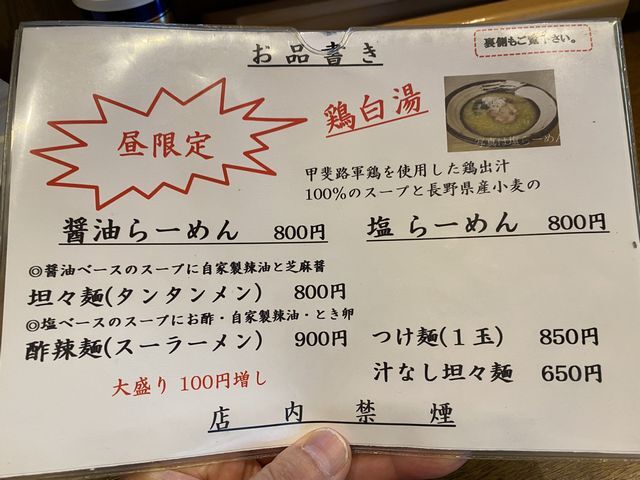 お品書き
裏側もご覧下さい。
昼限定
鶏白湯
甲斐路軍鶏を使用した鶏出汁
100%のスープと長野県産小麦の
醤油らーめん 800円
塩らーめん 800円
◎醤油ベースのスープに自家製辣油と芝麻醤
坦々麺(タンタンメン) 800円
◎塩ベースのスープにお酢・自家製辣油・とき卵
酢辣麺(スーラーメン) 900円
つけ麺(1玉) 850円
汁なし坦々麺 650円
大盛り 100円増し
店内禁煙